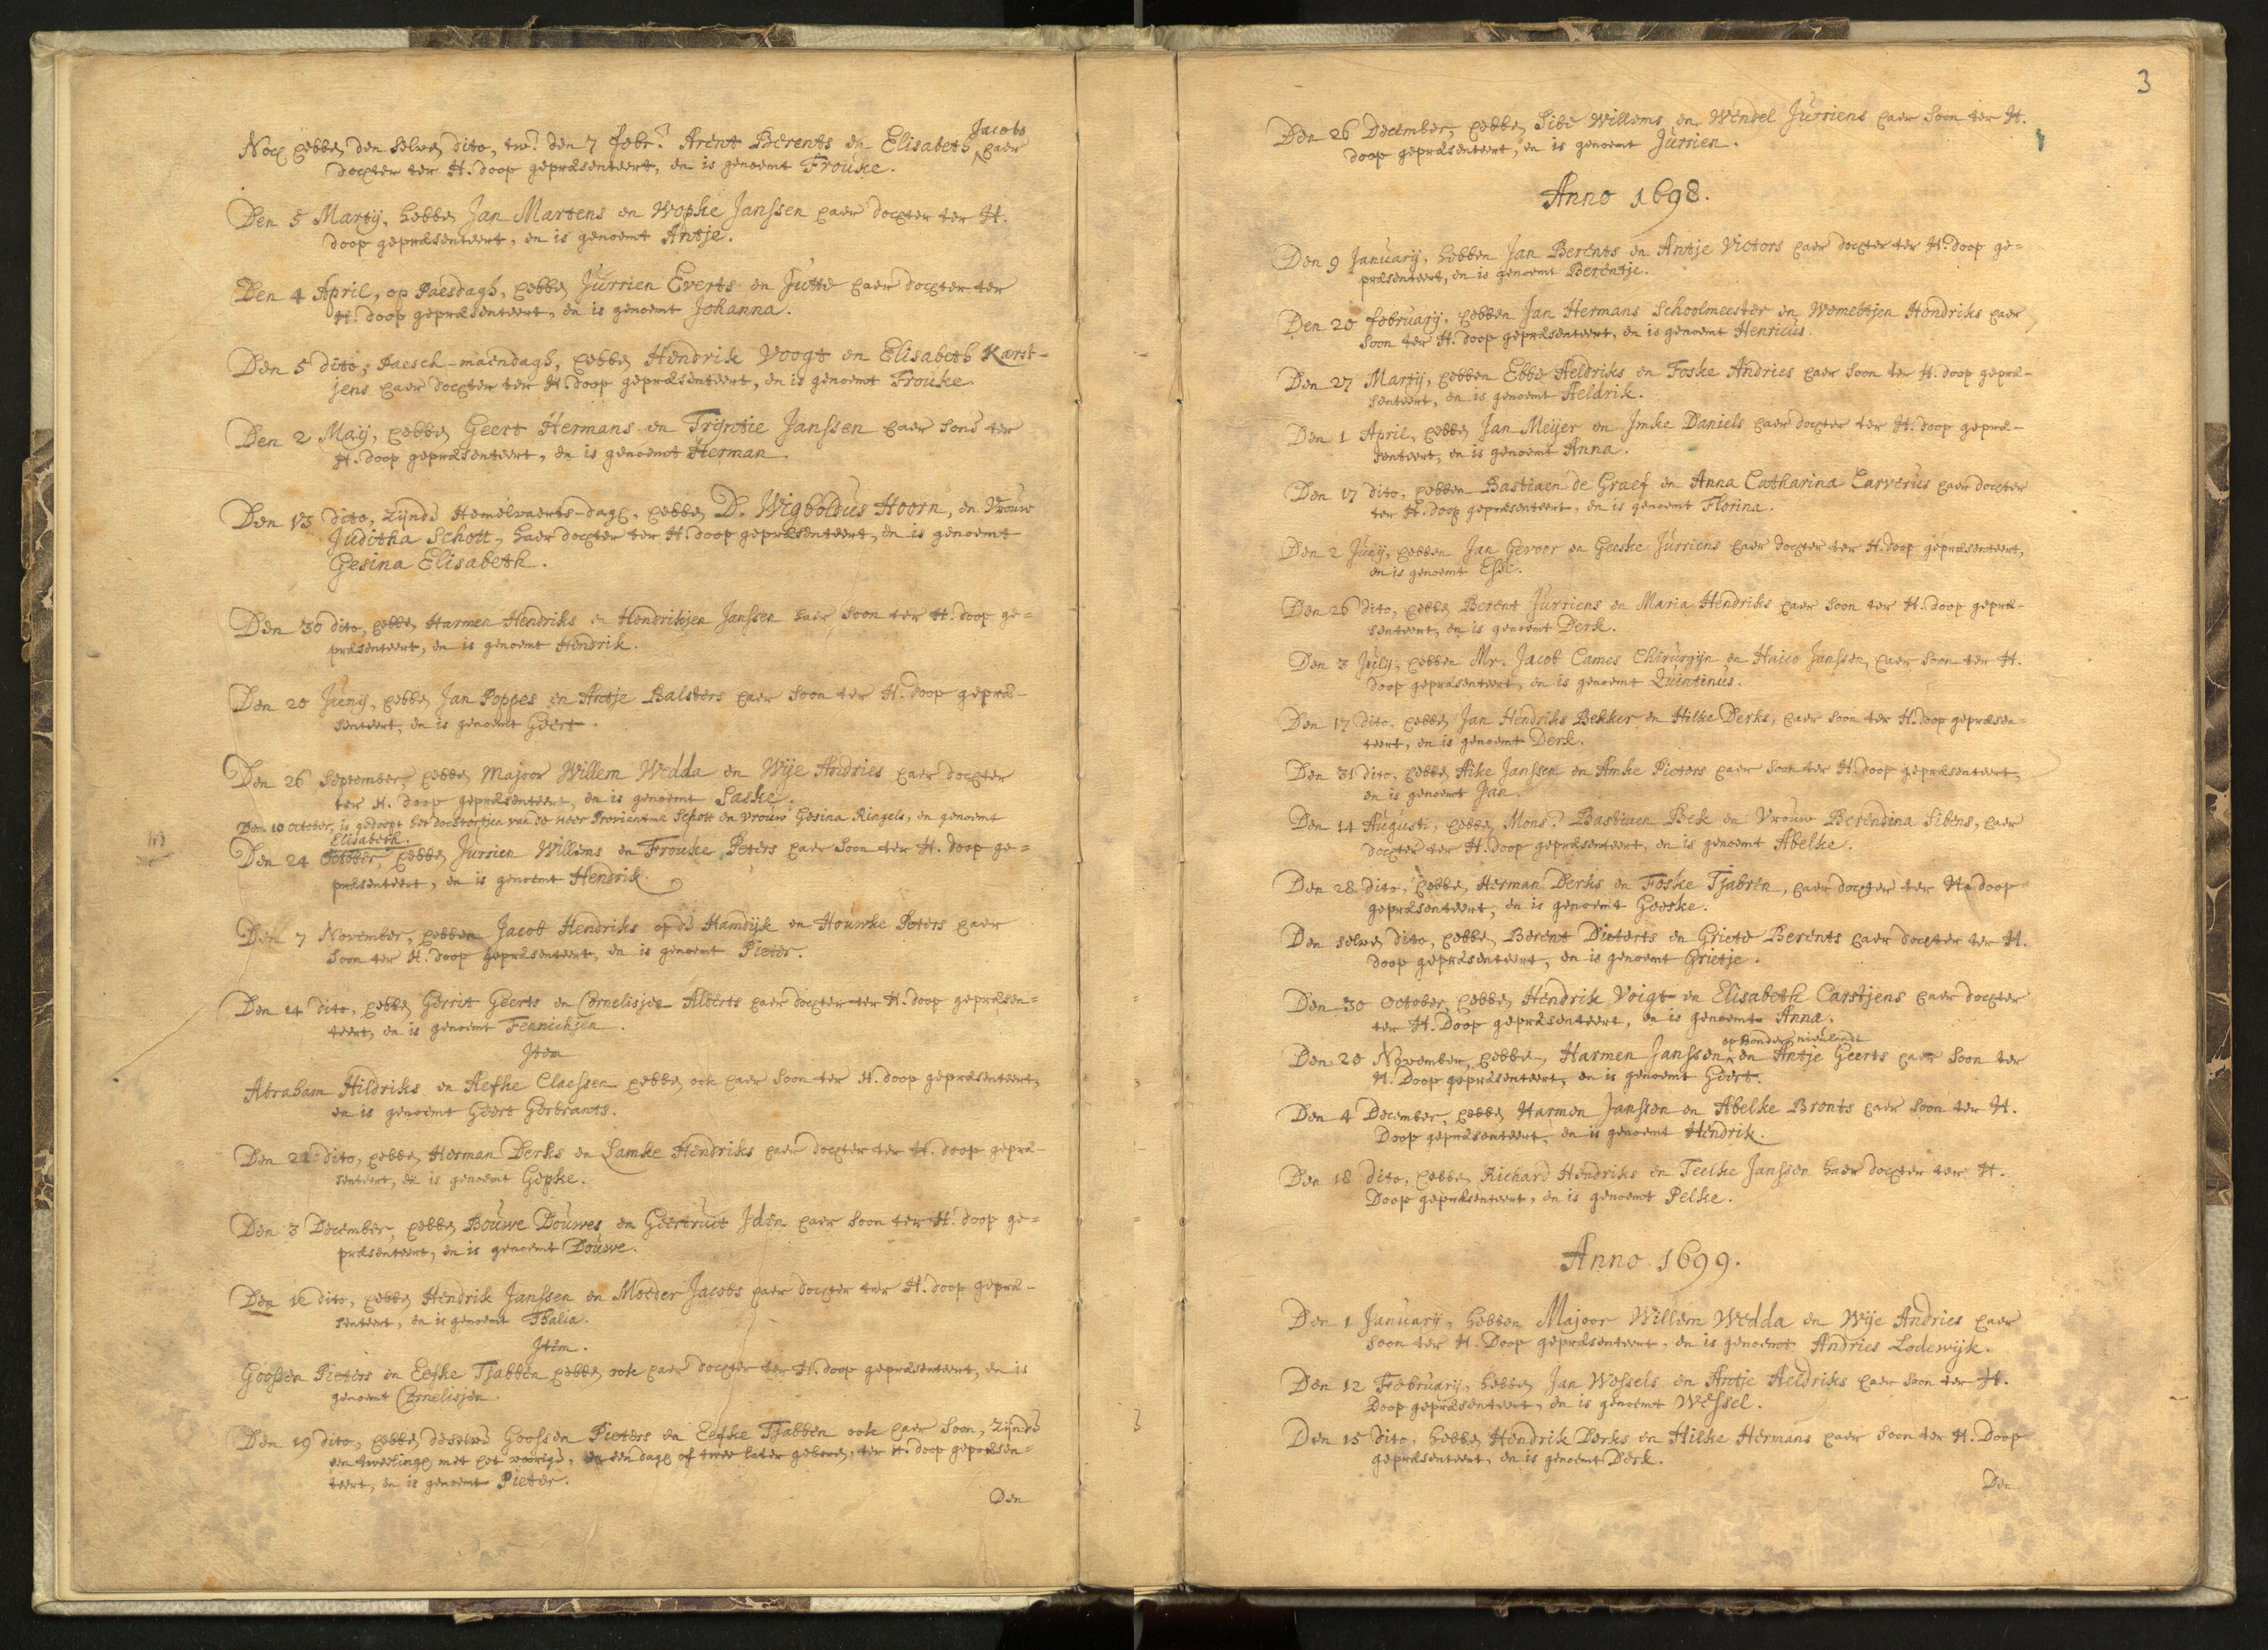 Noch hebben den selven dito, tw. den 7 Febr. Arent Berents en Elisabeth Jacobs haer
dochter ter H. doop gepræsenteert, en is genoemt Frouke.
Den 5 Martij, hebben Jan Martens en Wopke Janssen haer dochter ter H.
doop gepræsenteert, en is genoemt Antje.
Den 4 April, op Paesdagh, hebben Jurrien Everts en Jutte haer dochter ter
H. doop gepræsenteert, en is genoemt Johanna.
Den 5 dito, Paesch-maendagh, hebben Hendrik Voogt en Elisabeth Karst-
jens haer dochter ter H. doop gepræsenteert, en is genoemt Frouke.
Den 2 Maij, hebben Geert Hermans en Trijntie Janssen haer sone ter
H. doop gepræsenteert, en is genoemt Herman.
Den 13 dito, zijnde Hemelvaerts-dagh, hebben D. Wigboldus Hoorn, en Vrouw
Juditha Schott, haer dochter ter H. doop gepræsenteert, en is genoemt
Gesina Elisabeth.
Den 30 dito, hebben Harmen Hendriks en Hendrikjen Janssen haer soon ter H. doop ge=
præsenteert, en is genoemt Hendrik.
Den 20 Junij, hebben Jan Poppes en Antje Balsters haer soon ter H. doop gepræ-
senteert, en is genoemt Geert.
Den 26 September, hebben Majoor Willem Wedda en Wije Andries haer dochter
ter H. doop gepræsenteert, en is genoemt Saske.
Den 10 October, is gedoopt het dochtertjen van de Heer Proviantm. Schott en vrouw Gesina Ringels, en genoemt
Elisabeth.
NB
Den 24 October, hebben Jurrien Willems en Frouke Peters haer soon ter H. doop ge=
præsenteert, en is genoemt Hendrik.
Den 7 November, hebben Jacob Hendriks op de Hamdijk en Houwke Peters haer
soon ter H. doop gepræsenteert, en is genoemt Pieter.
Den 14 dito, hebben Gerrit Geerts en Cornelisjen Alberts haer dochter ter H. doop gepræsen=
teert, en is genoemt Fennichjen.
Item
Abraham Hildriks en Aefke Claessen hebben ook haer soon ter H. doop gepræsenteert,
en is genoemt Geert Gerbrants.
Den 21 dito, hebben Herman Derks en Lamke Hendriks haer dochter ter H. doop gepræ-
senteert, en is genoemt Gepke.
Den 3 December, hebben Bouwe Douwes en Geertruit Iden haer soon ter H. doop ge=
præsenteert, en is genoemt Douwe.
Den 12 dito, hebben Hendrik Janssen en Moeder Jacobs haer dochter ter H. doop gepræ-
senteert, en is genoemt Thalia.
Item.
Goossen Pieters en Eefke Tjabben hebben ook haer dochter ter H. doop gepræsenteert, en is
genoemt Cornelisjen.
Den 19 dito, hebben deselve Goossen Pieters en Eefke Tjabben ook haer soon, zijnde
een tweelingh met het voorige, een dagh of twee later geboren, ter H. doop gepræsen=
teert, en is genoemt Pieter.
Den
3
Den 26 December, hebben Sibe Willems en Wendel Jurriens haer soon ter H.
doop gepræsenteert, en is genoemt Jurrien.
Anno 1698.
Den 9 Januarij, hebben Jan Berents en Antje Victors haer dochter ter H. doop ge=
præsenteert, en is genoemt Berentje.
Den 20 Februarij, hebben Jan Hermans Schoolmeester en Wemeltjen Hendriks haer
soon ter H. doop gepræsenteert, en is genoemt Henricus.
Den 27 Martij, hebben Ebbe Aeldriks en Foske Andries haer soon ter H. doop gepræ-
senteert, en is genoemt Aeldrik.
Den 1 April, hebben Jan Meijer en Imke Daniels haer dochter ter H. doop gepræ-
senteert, en is genoemt Anna.
Den 17 dito, hebben Bastiaen de Graef en Anna Catharina Carverus haer dochter
ter H. doop gepræsenteert, en is genoemt Florina.
Den 2 Junij, hebben Jan Gevoer en Geeske Jurriens haer dochter ter H. doop gepræsenteert,
en is genoemt Esse.
Den 26 dito, hebben Berent Jurriens en Maria Hendriks haer soon ter H. doop gepræ-
senteert, en is genoemt Derk.
Den 3 Julij, hebben Mr. Jacob Cames Chirurgijn en Haico Janssen, haer soon ter H.
doop gepræsenteert, en is genoemt Quintinus.
Den 17 dito, hebben Jan Hendriks Bekker en Hilke Derks, haer soon ter H. doop gepræsen=
teert, en is genoemt Derk.
Den 31 dito, hebben Aike Janssen en Amke Pieters haer soon ter H. doop gepræsenteert,
en is genoemt Jan.
Den 14 Augusti, hebben Mons. Bastiaen Bek en Vrouw Berendina Sibens, haer
dochter ter H. doop gepræsenteert, en is genoemt Abelke.
Den 28 dito, hebben Herman Derks en Foske Tjabren, haer dochter ter H. doop
gepræsenteert, en is genoemt Geeske.
Den selven dito, hebben Berent Dieterts en Griete Berents haer dochter ter H.
doop gepræsenteert, en is genoemt Grietje.
Den 30 October, hebben Hendrik Voigt en Elisabeth Carstjens haer dochter
ter H. Doop gepræsenteert, en is genoemt Anna.
Den 20 November, hebben Harmen Janssen op Bonder nieulandt en Antje Geerts haer soon ter
H. Doop gepræsenteert, en is genoemt Geert.
Den 4 December, hebben Harmen Janssen en Abelke Bronts haer soon ter H.
Doop gepræsenteert, en is genoemt Hendrik.
Den 18 dito, hebben Richard Hendriks en Teelke Janssen haer dochter ter H.
Doop gepræsenteert, en is genoemt Pelke.
Anno 1699.
Den 1 Januarij, hebben Majoor Willem Wedda en Wije Andries haer
soon ter H. Doop gepræsenteert, en is genoemt Andries Lodewijk.
Den 12 Februarij, hebben Jan Wessels en Antje Aeldriks haer soon ter H.
Doop gepræsenteert, en is genoemt Wessel.
Den 15 dito, hebben Hendrik Derks en Hilke Hermans haer soon ter H. Doop
gepræsenteert, en is genoemt Derk.
Den